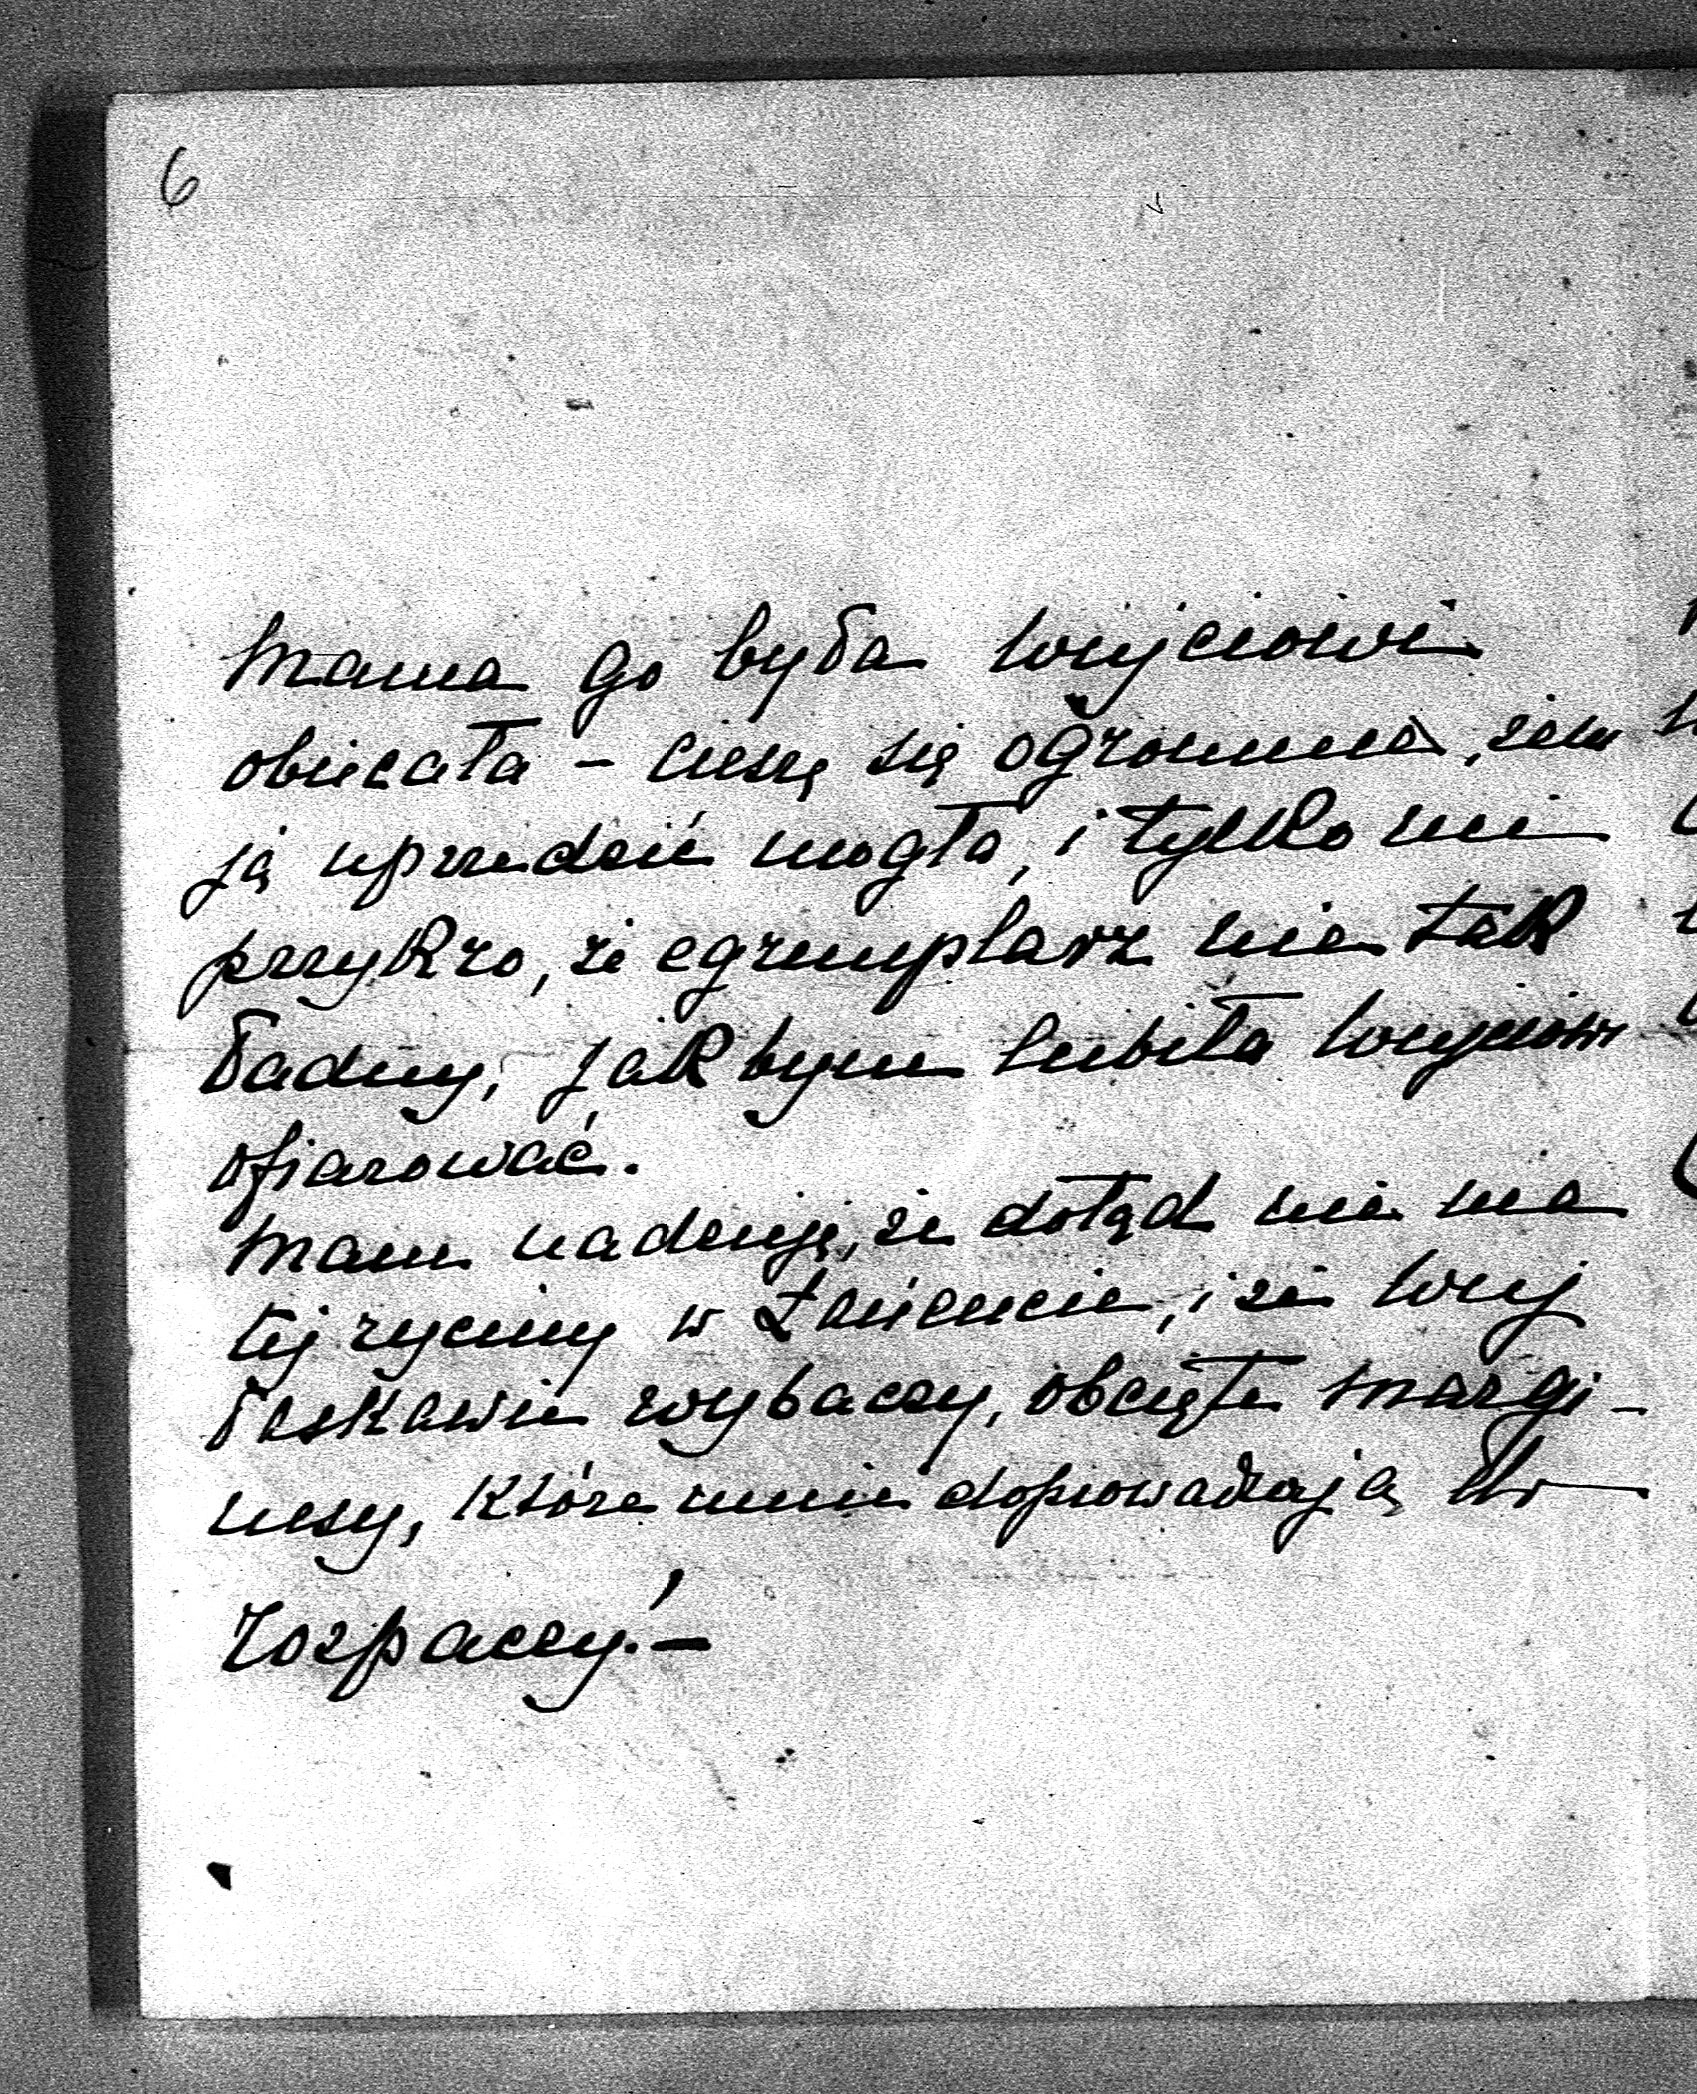 6
Mama go była Wujciowi
obiecała – cieszę się ogromnie, żem
ją uprzedzić mogła, i tylko mi
przykro, że egzemplarz nie tak
ładny, jakbym lubiła Wujciowi
ofiarować.
Mam nadzieję, że dotąd nie ma
tej ryciny w Łańcucie, i że Wuj
łaskawie wybaczy, obcięte margi-
nesy, które mnie doprowadzają do
rozpaczy! –